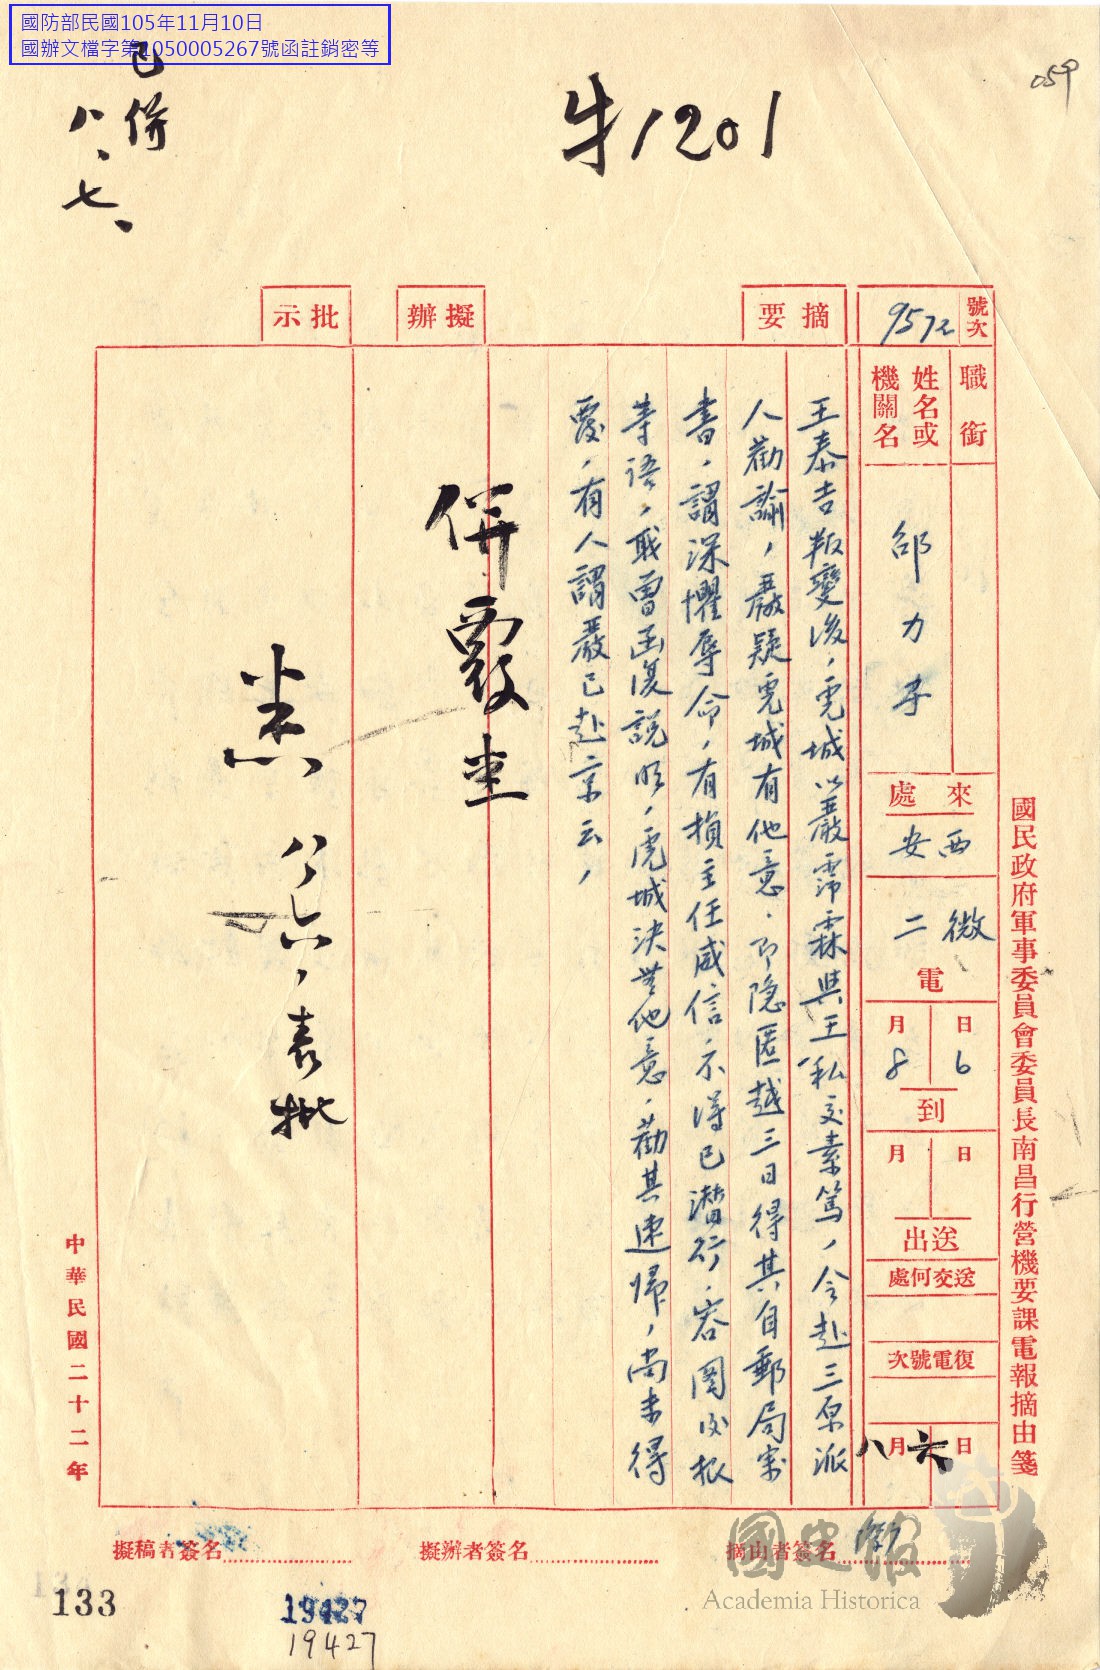 國防部民國105年11月10日
國辦文檔字第1050005267號函註銷密等
059
牛1201
已併
八、七、
國民政府軍事委員會委員長南昌行營機要課電報摘由箋
號次
9572
職銜
姓名或
機關名
邵力子
來處
西安
微二
電
日 6
月 8
到
日
月
送出
送交何處
復電號次
六日
八月
摘要
王泰吉叛變後，虎城以嚴霈霖與王私交素篤，令赴三原派
人勸諭，嚴疑虎城有他意，即隱匿越三日得其自郵局寄
書，謂深懼辱命，有損主任威信，不得已潛行，容圖後報
等語，職曾函復說明，虎城決無他意，勸其速歸，尚未得
覆，有人謂嚴已赴京云，
擬辦
併覆
批示
悉
八、六、表批
中華民國二十二年
摘由者簽名
擬辦者簽名
擬稿者簽名
133
19427
19427
國史館
Academia Historica